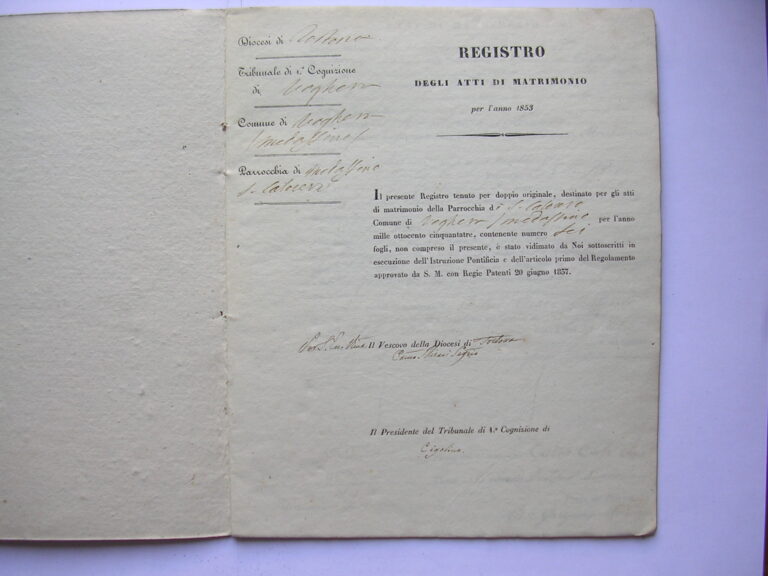 Diocesi di Tortona
Tribunale di 1.ª Cognizione
di Voghera
Comune di Voghera
(Medassino)
Parrocchia di Medassino
S. Calocero
REGISTRO
DEGLI ATTI DI MATRIMONIO
per l'anno 1853
Il presente Registro tenuto per doppio originale, destinato per gli atti
di matrimonio della Parrocchia di S. Calocero
Comune di Voghera (Medassino per l'anno
mille ottocento cinquantatre, contenente numero sei
fogli, non compreso il presente, è stato vidimato da Noi sottoscritti in
esecuzione dell'Istruzione Pontificia e dell'articolo primo del Regolamento
approvato da S. M. con Regie Patenti 20 giugno 1837.
Il Vescovo della Diocesi di Tortona
Il Presidente del Tribunale di 1.ª Cognizione di